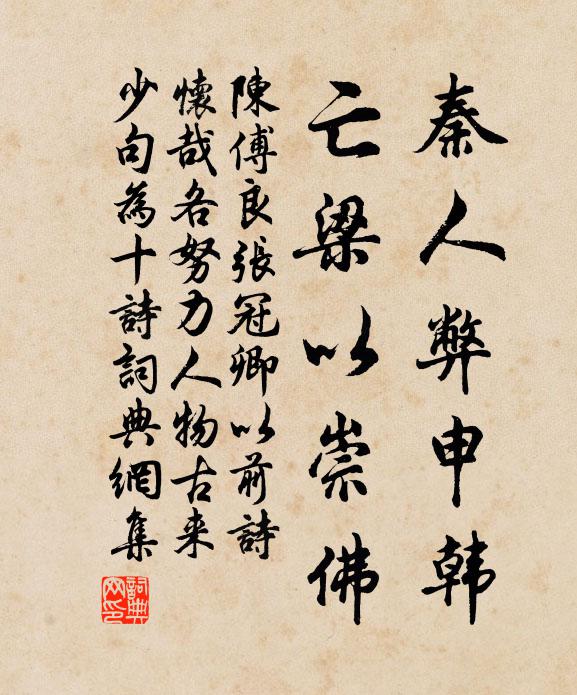 秦人弊申韓
亡梁以崇佛
陳傅良張冠卿以前詩
懷哉各努力人物古來
少句為十詩詞典網集
詞典網印